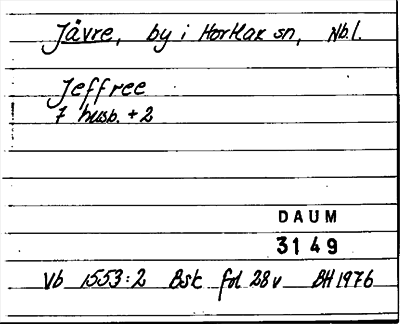 Jävre, by i Hortlax sn, Nb.l.
Jeffree
7 husb. + 2
DAUM
3149
Vb 1553:2 Bsk fol 28v BH 1976